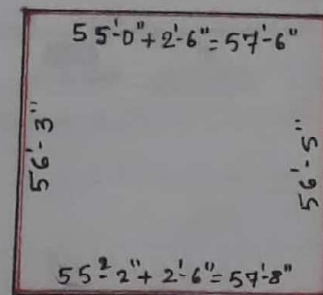 55'-0"+2'-6"=57'-6"
56'-3"
56'-5"
55'-2"+2'-6"=57'-8"